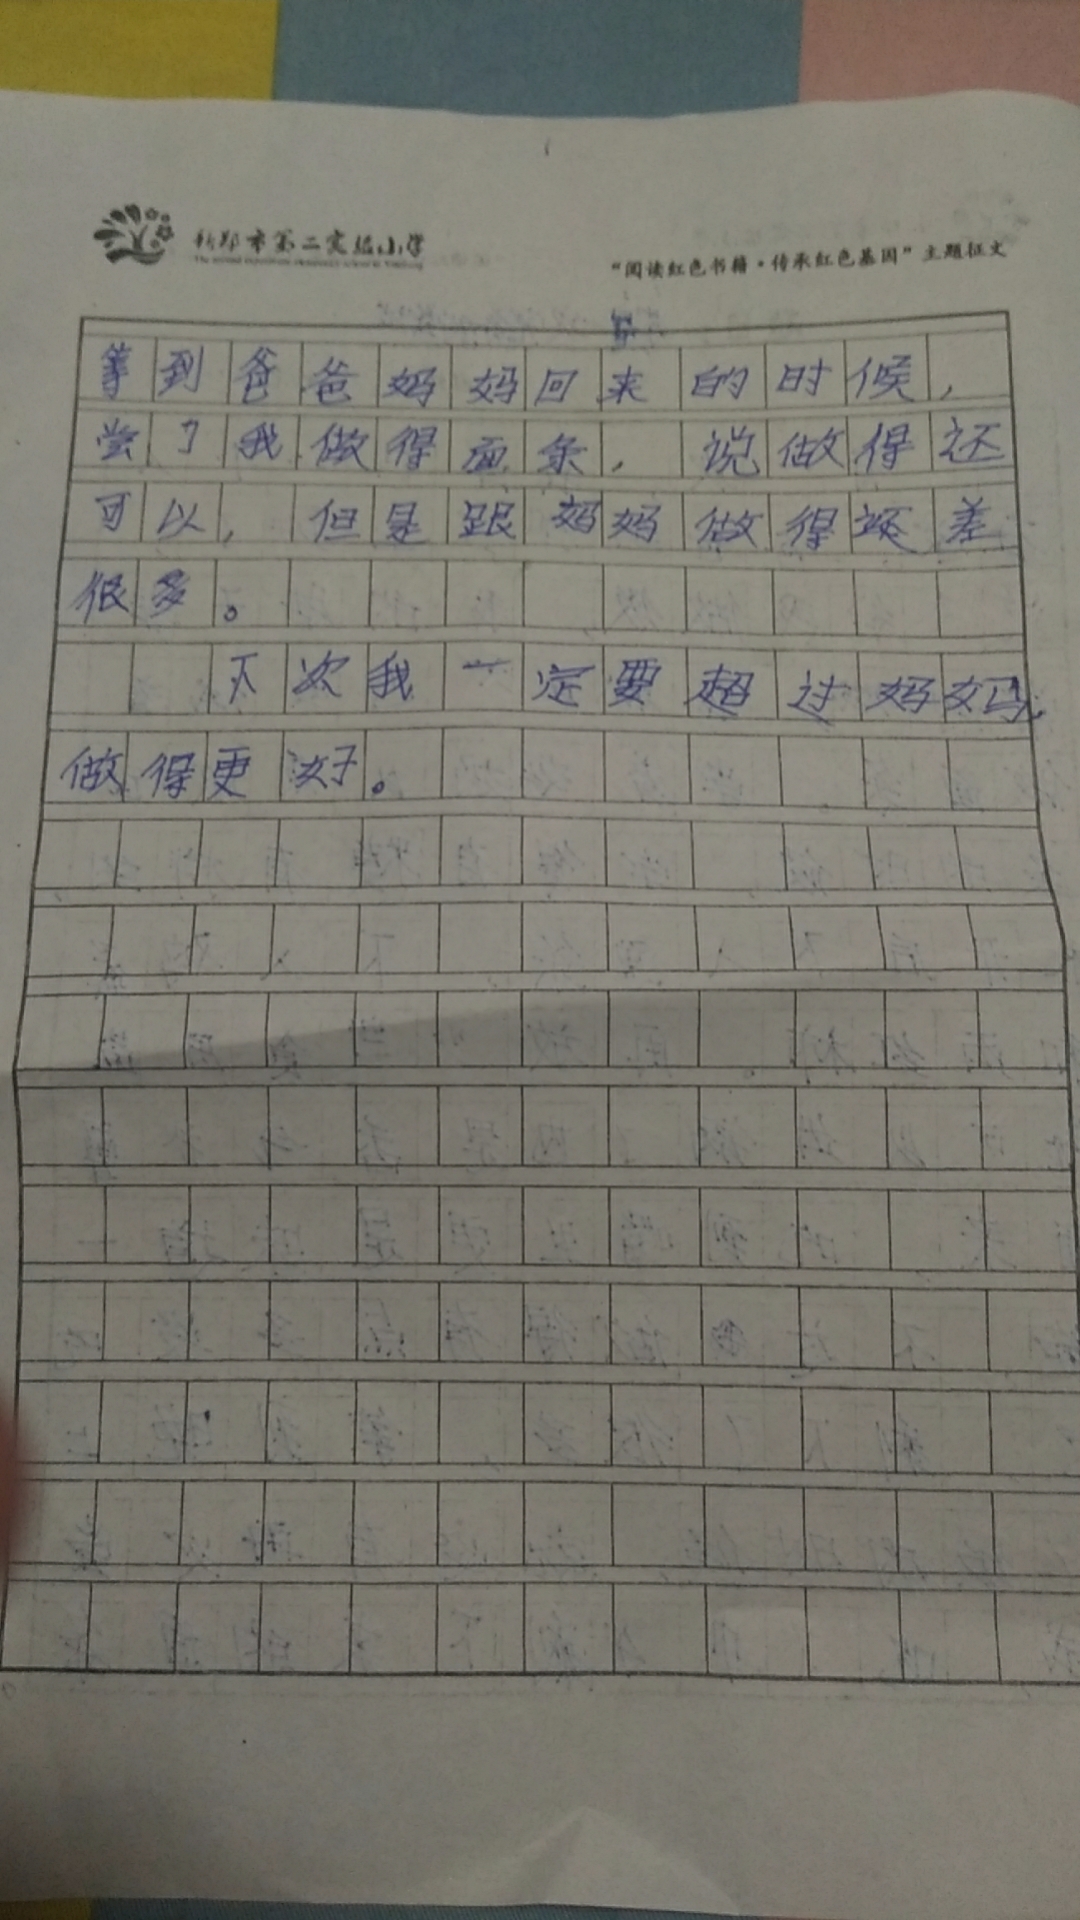 新郑市第二实验小学
“阅读红色书籍·传承红色基因”主题征文
等到爸爸妈妈回来的时候，
尝了我做得面条，说做得还
可以，但是跟妈妈做得还差
很多。
下次我一定要超过妈妈，
做得更好。